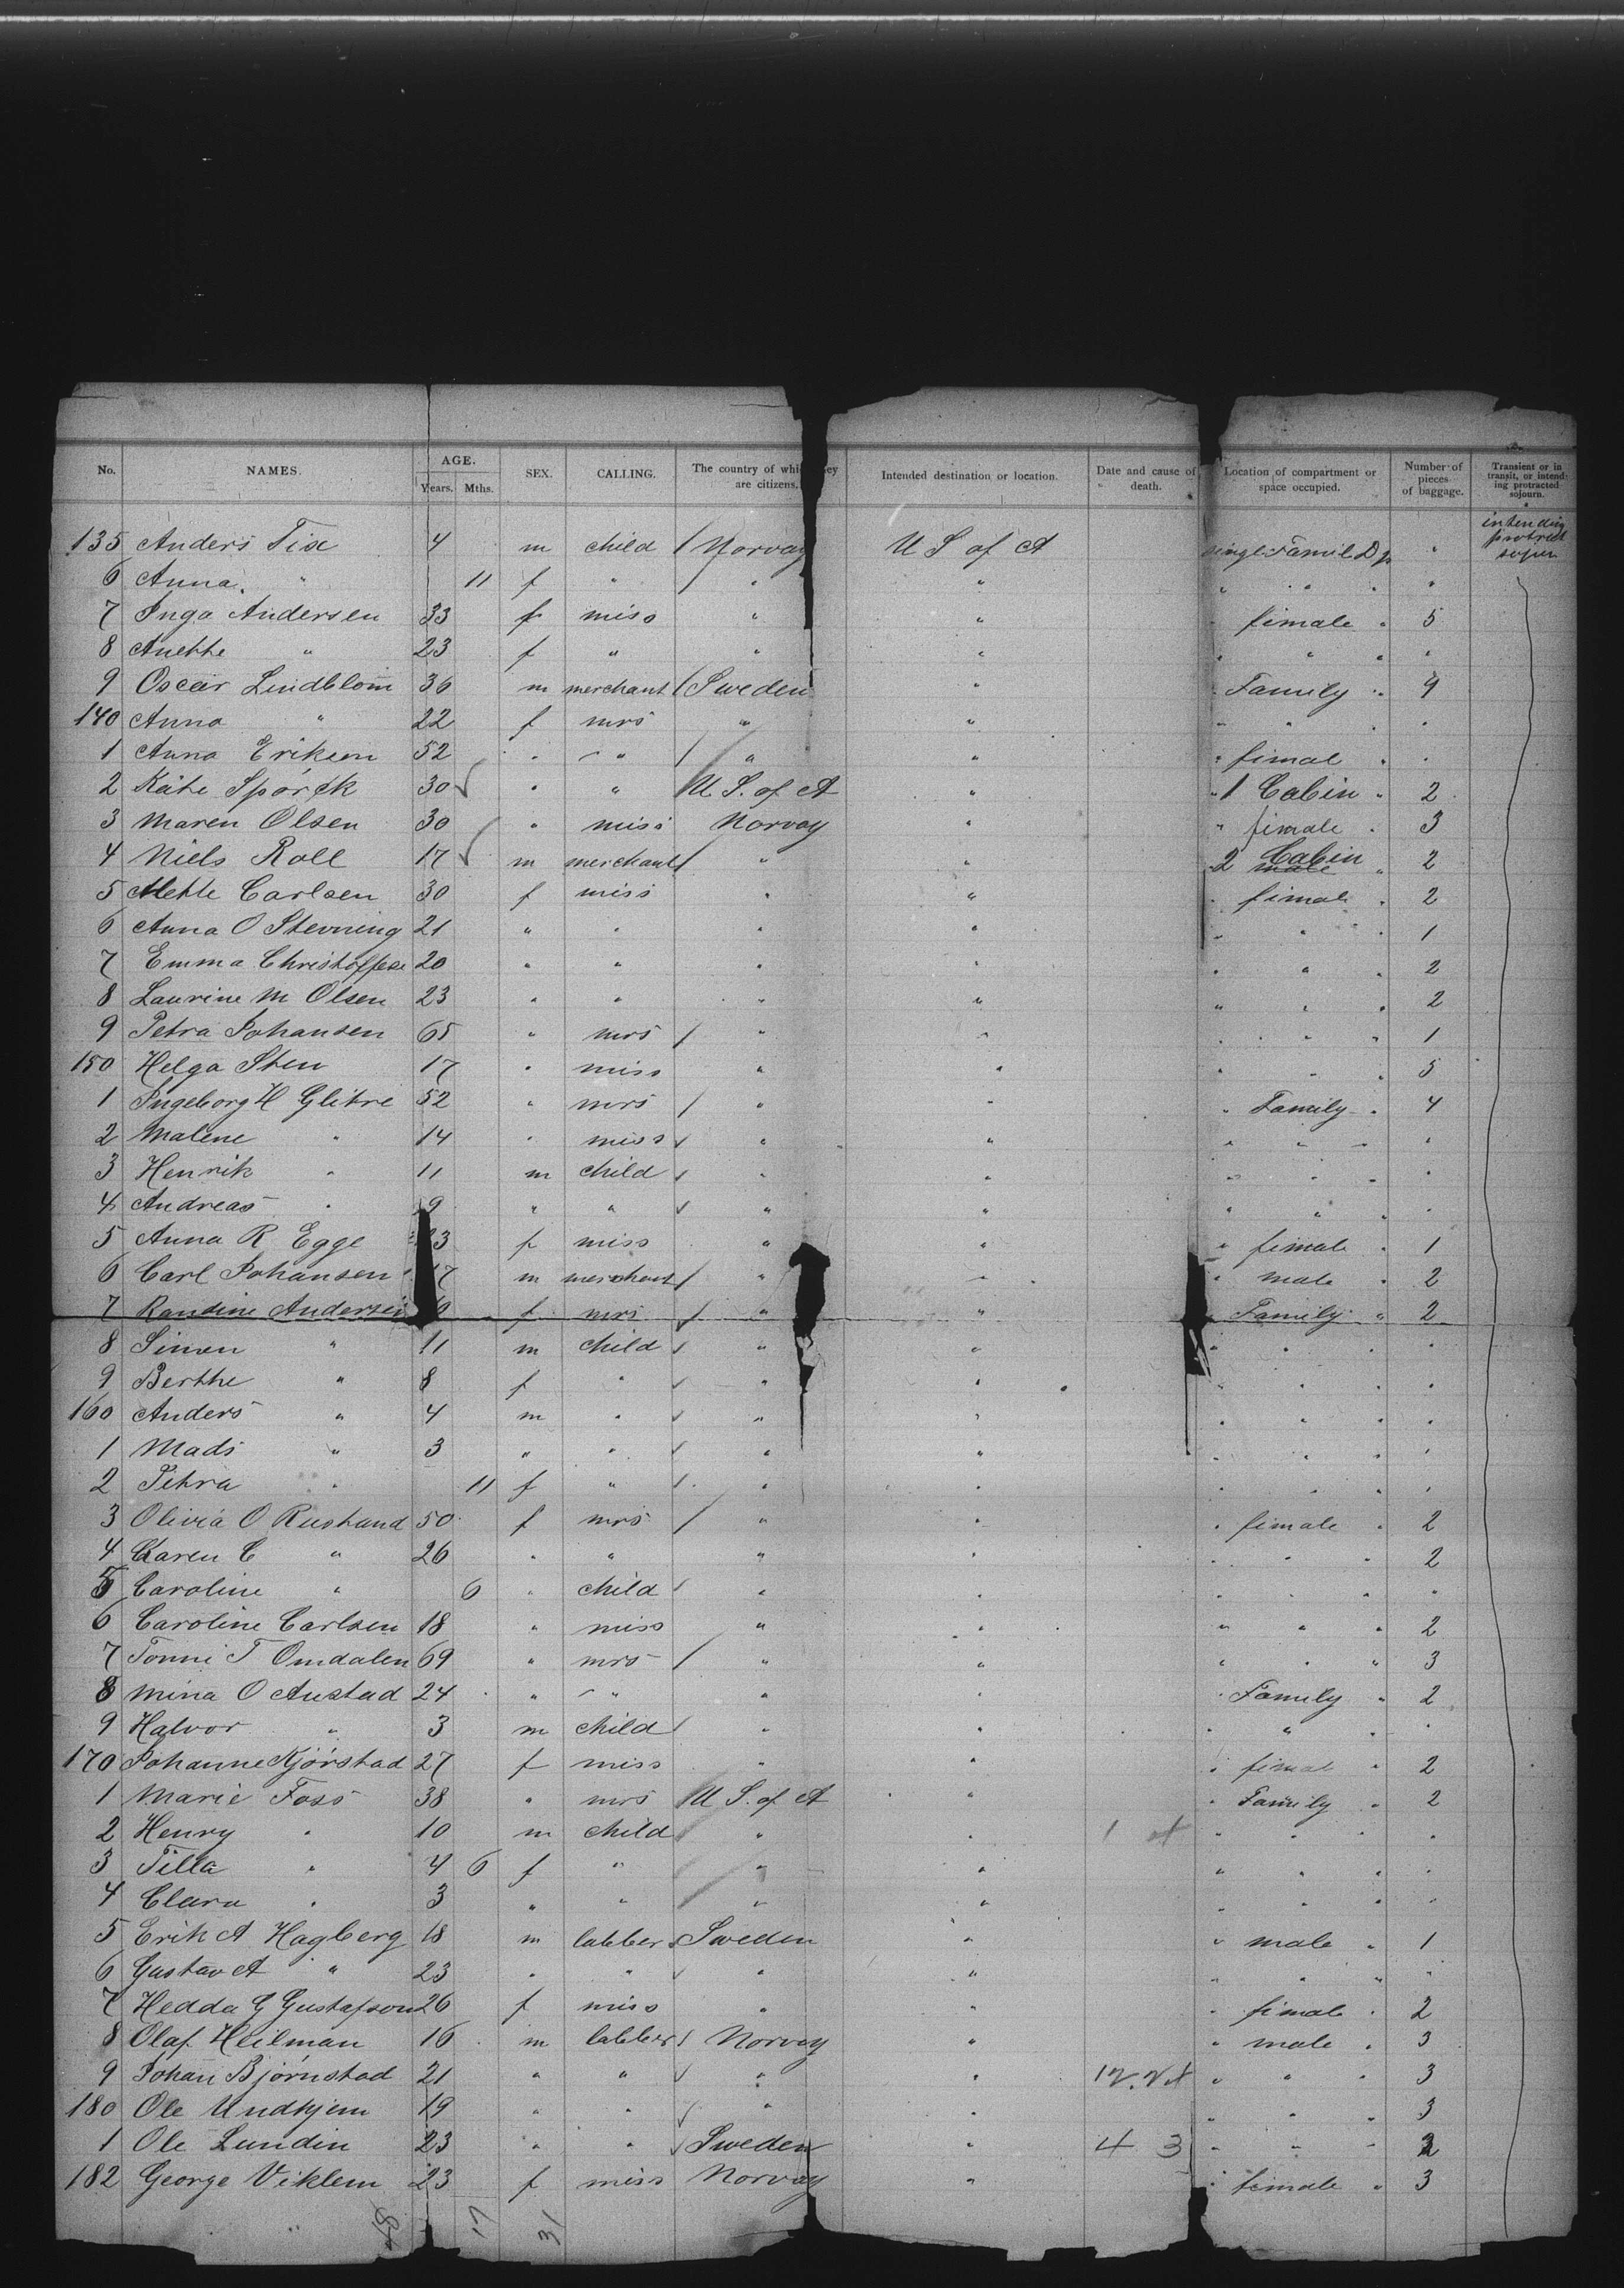 No. NAMES. AGE. Years. Mths. SEX. CALLING. The country of whi ey are citizens. Intended destination or location. Date and cause of death. Location of compartment or space occupied. Number of pieces of baggage. Transient or in transit, or intending protracted sojourn.
135 Anders Tise 4 m child / Norvay U S of A single Famil Dp " intending protract
6 Anna " 11 f " / " " " " " "
7 Inga Andersen 33 f miss " " " fimale " 5
8 Anethe " 23 f " " " " " " "
9 Oscar Lindblom 36 m merchant / Sweden " " Family " 9
140 Anna " 22 f mrs " " " " " "
1 Anna Eriksen 52 " " / " " " fimal " "
2 Käte Spörck 30 ✓ " " / U S. of A " " 1 Cabin " 2
3 Maren Olsen 30 " miss Norvay " " fimale " 3
4 Niels Roll 17 ✓ m merchant / " " 2 Cabin male " 2
5 Mette Carlsen 30 f miss " " " fimale " 2
6 Anna O Stevning 21 " " " " " " " 1
7 Emma Christoffese 20 " " " " " " " 2
8 Laurine M Olsen 23 " " " " " " " 2
9 Petra Johansen 65 " mrs / " " " " " 1
150 Helga Sten 17 " miss " " " " " 5
1 Ingeborg H Glitre 52 " mrs / " " " Family " 4
2 Malene " 14 " miss ✓ " " " " " "
3 Henrik " 11 m child ✓ " " " " " "
4 Andreas " 9 " " ✓ " " " " " "
5 Anna R Egge 23 f miss " " " fimale " 1
6 Carl Johansen 7 m merchant / " " " male " 2
7 Randine Andersen 0 f mrs / " " " Family " 2
8 Simen " 11 m child ✓ " " " " " "
9 Berthe " 8 f " ✓ " " " " " "
160 Anders " 4 m " ✓ " " " " " "
1 Mads " 3 " " ✓ " " " " " "
2 Petra " 11 f " / " " " " " "
3 Olivia O Rustand 50 f mrs / " " " fimale " 2
4 Karen C " 26 " " " " " " " 2
5 Caroline " 6 " child / " " " " " "
6 Caroline Carlsen 18 " miss " " " " " 2
7 Tonni T Omdalen 69 " mrs / " " " " " 3
8 Mina O Austad 24 " " " " " Family " 2
9 Halvor " 3 m child / " " " " " "
170 Johanne Kjörstad 27 f miss " " " fimal " 2
1 Marie Foss 38 " mrs / U S. of A " " Family " 2
2 Henry " 10 m child / " " " " " "
3 Tilla " 4 6 f " " " " " " "
4 Clara " 3 " " " " " " " "
5 Erik A Hagberg 18 m labber Sweden " " male " 1
6 Gustav A " 23 " " ✓ " " " " " "
7 Hedda G Gustafson 26 f miss " " " fimale " 2
8 Olaf Heilman 16 m labber / Norvay " " male " 3
9 Johan Björnstad 21 " " ✓ " " " " " 3
180 Ole Undhjem 19 " " ✓ " " " " " 3
1 Ole Lundin 23 " " ✓ Sweden " 4 3 " " " 2
182 George Viklem 23 f miss Norvay " " female " 3
17 31